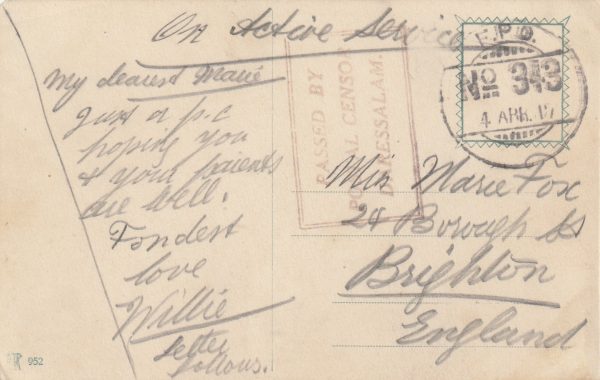 On Active Service
F.P.O.
No 343
4 APR. 17
PASSED BY
POSTAL CENSOR
DARESSALAM.
My dearest Marie
Just a p.c
hoping you
& your parents
are well.
Fondest
love
Willie
Letter
follows.
Miss Marie Fox
Borough St
Brighton
England
952